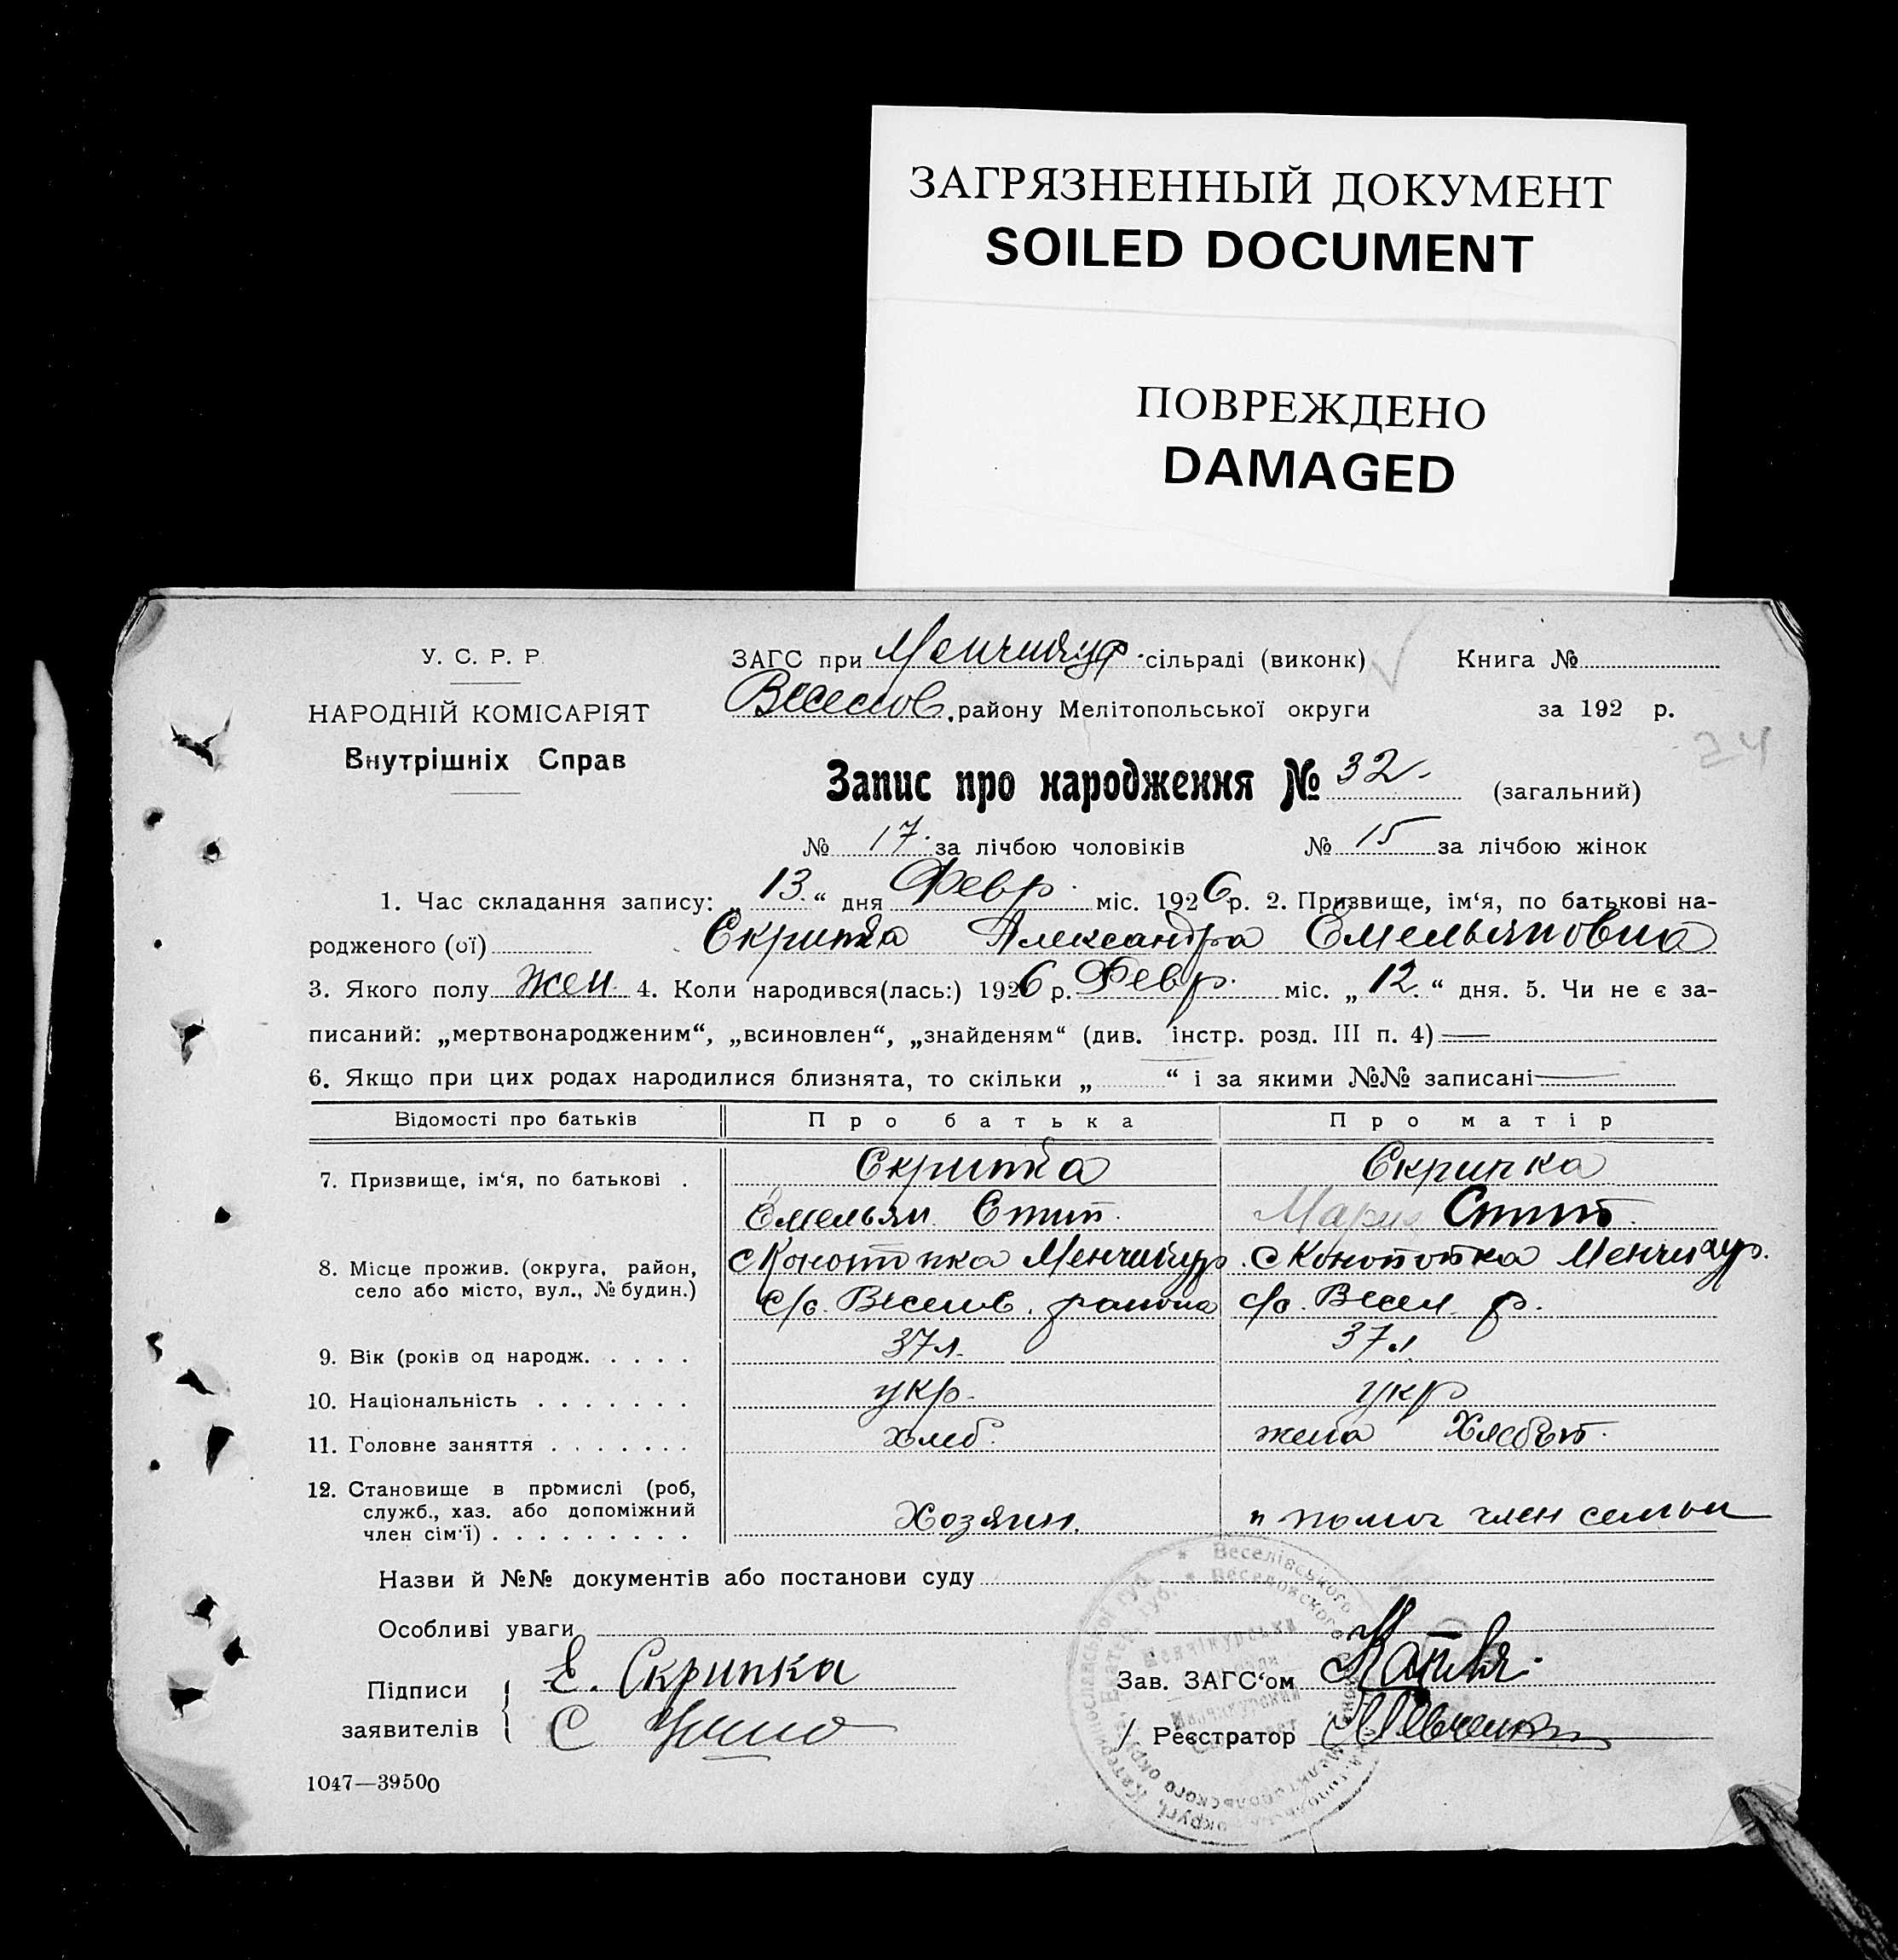 ЗАГРЯЗНЕННЫЙ ДОКУМЕНТ
SOILED DOCUMENT
ПОВРЕЖДЕНО
DAMAGED
У. С. Р. Р.
НАРОДНІЙ КОМІСАРІЯТ
Внутрішніх Справ
ЗАГС при Менчикур. сільраді (виконк)
Книга №
Веселов. району Мелітопольської округи
за 192 р.
24
Запис про народження № 32. (загальний)
№ 17. за лічбою чоловіків № 15 за лічбою жінок
1. Час складання запису: „13.“ дня Февр. міс. 1926 р. 2. Призвище, ім‘я, по батькові на-
родженого (ої) Скрипка Александра Емельяновна
3. Якого полу жен. 4. Коли народився(лась:) 1926 р. Февр. міс. „12.“ дня. 5. Чи не є за-
писаний: „мертвонародженим“, „всиновлен“, „знайденям“ (див. інстр. розд. III п. 4)
6. Якщо при цих родах народилися близнята, то скільки „ “ і за якими №№ записані
Відомості про батьків Про батька Про матір
7. Призвище, ім‘я, по батькові . Скрипка Скрипка
Емельян Мария
8. Місце прожив. (округа, район, с Конотопка Менчикур. с Конотопка Менчикур.
село або місто, вул., № будин.) с/с. Веселов. района с/с. Весел. р.
9. Вік (років од народж. . . . . 37 л. 37 л.
10. Національність . . . . . . . укр. укр
11. Головне заняття . . . . . . . хлеб. жена Хлебоп.
12. Становище в промислі (роб,
служб., хаз. або допоміжний
член сім‘ї) . . . . . . . . . Хозяин. " помог член семьи
Назви й №№ документів або постанови суду
Особливі уваги
Підписи Е. Скрипка Зав. ЗАГС‘ом
заявителів С Реєстратор
1047—39500